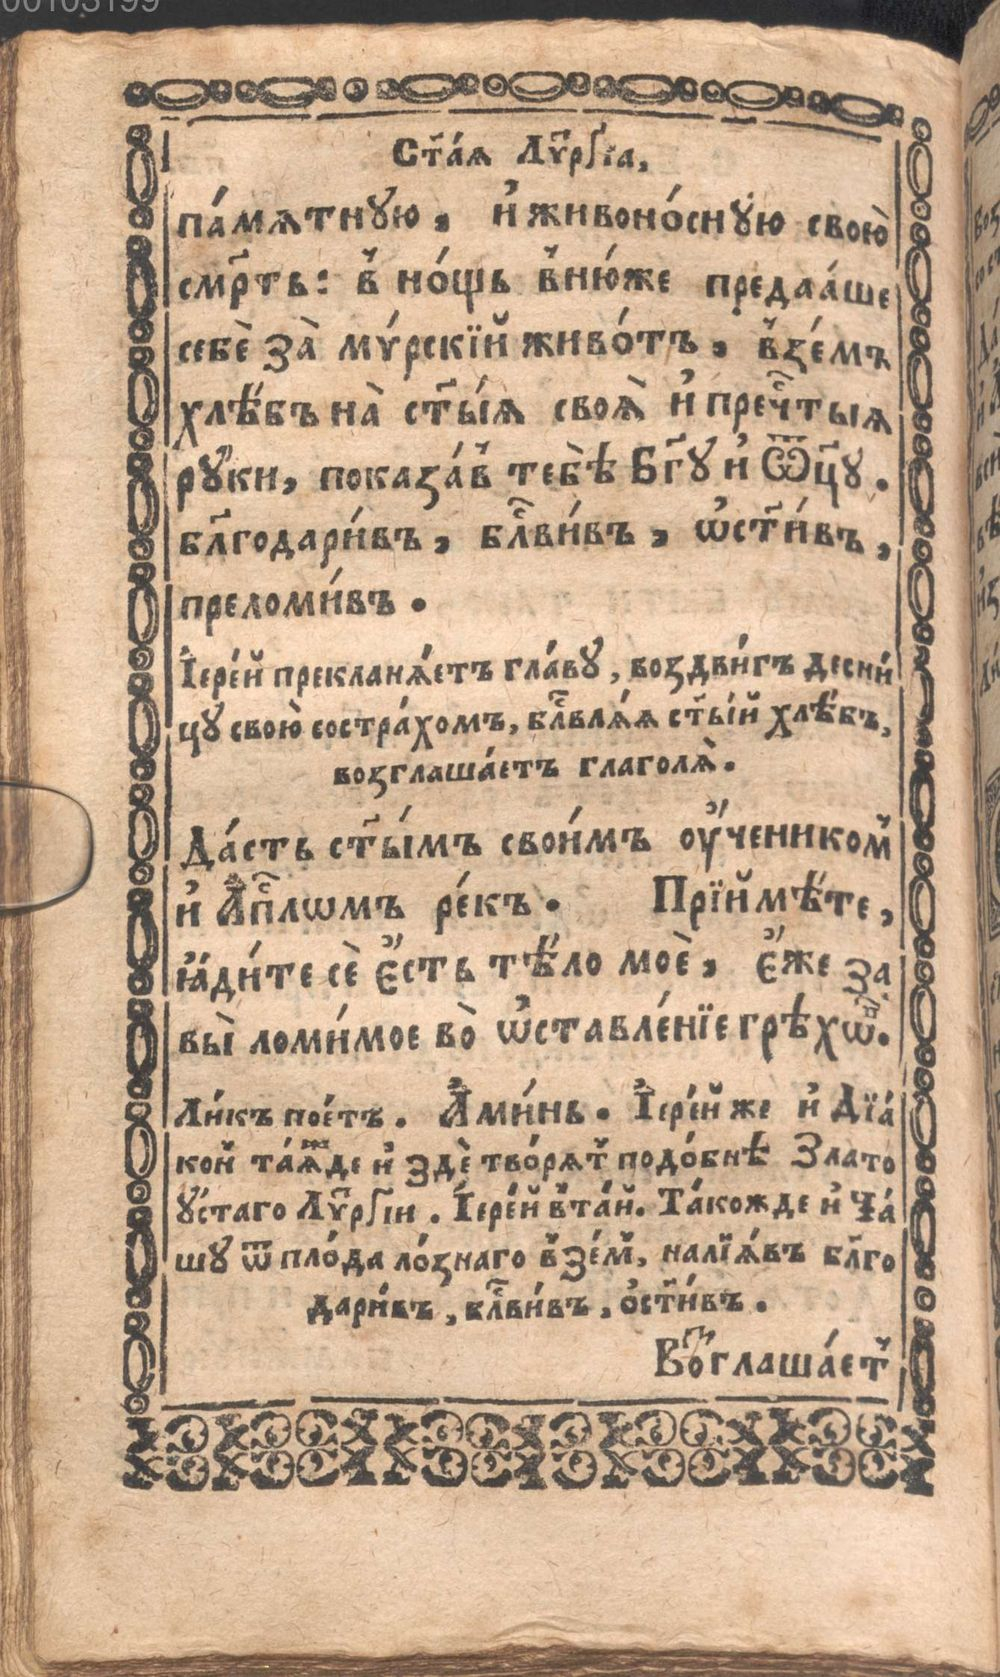 00103199
Ст҃а́ѧ Лѷрⷢ҇їа,
па́мѧтнꙋю, и҆ живоно́снꙋю свою̀
смр҃ть: в̾ но́щь в̾ню́же предаа́ше
себѐ за̀ мѵ́рскїй живо́тъ, в̾зе́мъ
хлѣ́бъ на̀ ст҃ы́ѧ своѧ̀ и҆ пречⷭ҇тыѧ
рꙋ́ки, показа́в̾ тебѣ̀ Бг҃ꙋ и҆ Ѿц҃ꙋ.
бл҃годари́въ, блⷭ҇ви́въ, ѡ҆ст҃и́въ,
преломи́въ.
І҆ере́й прекланѧ́етъ гла́вꙋ, воздви́гъ десни́
цꙋ свою̀ сострахомъ, блⷭ҇влѧ́ѧ ст҃ы́й хлѣ́бъ,
возглаша́етъ глаголѧ̀.
Да́сть ст҃ы́мъ свои́мъ оу҆ченикоⷨ
и҆ А҆пⷭ҇лѡмъ ре́къ. Прїймѣ́те,
ꙗ҆ди́те сѐ є҆́сть тѣ́ло моѐ, є҆́же за
вы̀ ломи́мое во̀ ѡ҆ставле́нїе грѣхѡ́ⷡ.
Ли́къ пое́тъ. А҆ми́нь. І҆ере́й же и҆ Дїа́
кон̾ та́ѧⷤде и҆ здѐ творѧ́т̾ подо́бнѣ Злато
ꙋ́стаго Лѷрⷢ҇їи. І҆ере́й в̾та́й. Та́кожде и҆ Ча́
шꙋ ѿ пло́да ло́знаго в̾зе́м̾, налїѧ́въ бл҃го
дари́въ, блⷭ҇ви́въ, ѻ҆ст҃и́въ.
Воⷥглаша́ет̾